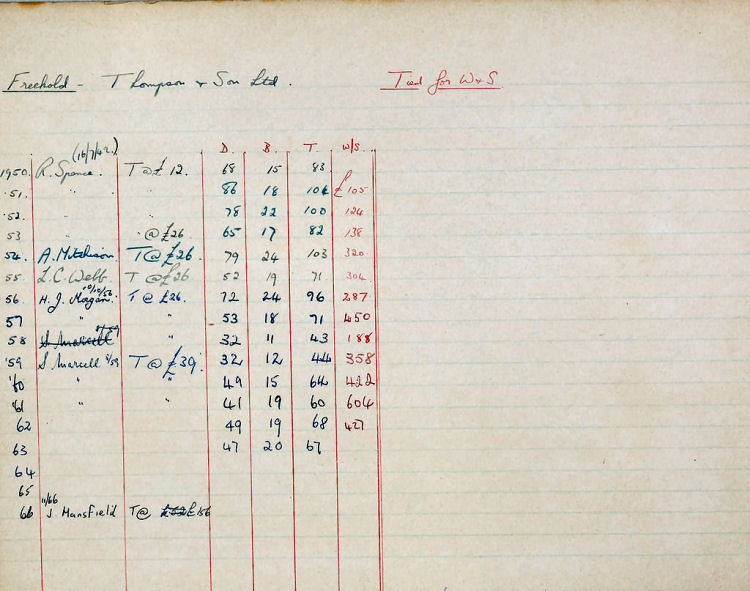 Freehold - Thompson & Son Ltd. Tied for W & S
(16/7/42.) D. B. T. W/S.
1950. R. Spence. T @ £12. 68 15 83
'51. " " 86 18 104 £105
'52. " " 78 22 100 124
53 " " @ £26 65 17 82 138
54. A. Mitchison T @ £26. 79 24 103 320
55. L.C. Webb T @ £26 52 19 71 304
56. H.J. Magan. 10/10/56 T @ £26. 72 24 96 287
57 " " 53 18 71 450
58 S Marcell 5/59 " 32 11 43 188
'59 S Marcell 5/59 T @ £39. 32 12 44 358
'60 " " 49 15 64 422
'61 " " 41 19 60 604
62 49 19 68 427
63 47 20 67
64
65
11/66
66 J. Mansfield T @ £156